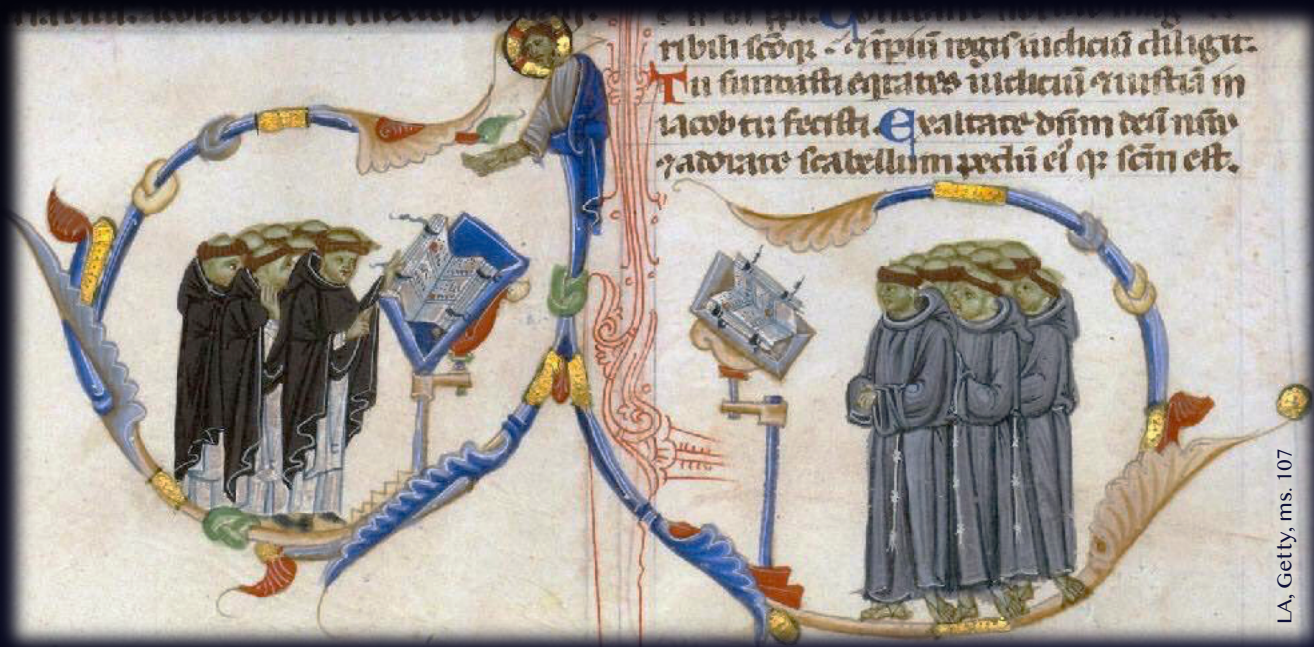 ribili scōqȝ · ⁊ īpiū regis iudiciū diligit.
Tu fundasti eqitates iudiciū ⁊ iustiā in
iacob tu fecisti. Exaltate dn̄m deū nr̄m
⁊ adorate scabellum pedū eiꝰ qꝛ scm̄ est.
LA, Getty, ms. 107